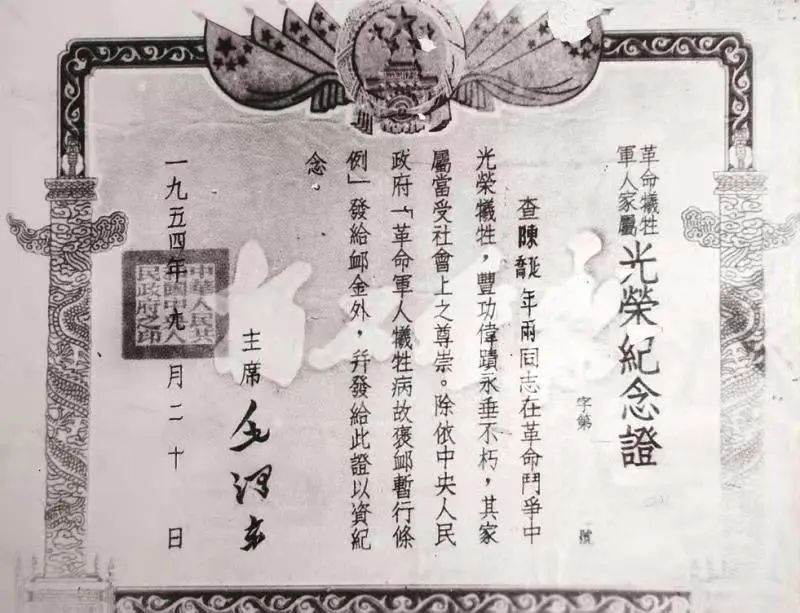 革命犧牲
軍人家屬
光榮紀念證
字第 號
查陳喬延年兩同志在革命鬥爭中
光榮犧牲，豐功偉蹟永垂不朽，其家
屬當受社會上之尊崇。除依中央人民
政府「革命軍人犧牲病故褒卹暫行條
例」發給卹金外，幷發給此證以資紀
念
主席 毛澤東
一九五四年九月二十日
中華人民共
和國中央人
民政府之印